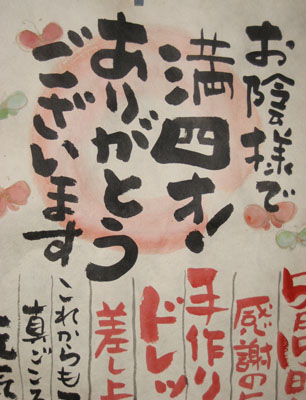 お陰様で
満四才!
ありがとう
ございます
感謝の
手作り
ドレッ
差し上
これからも
真ごころ